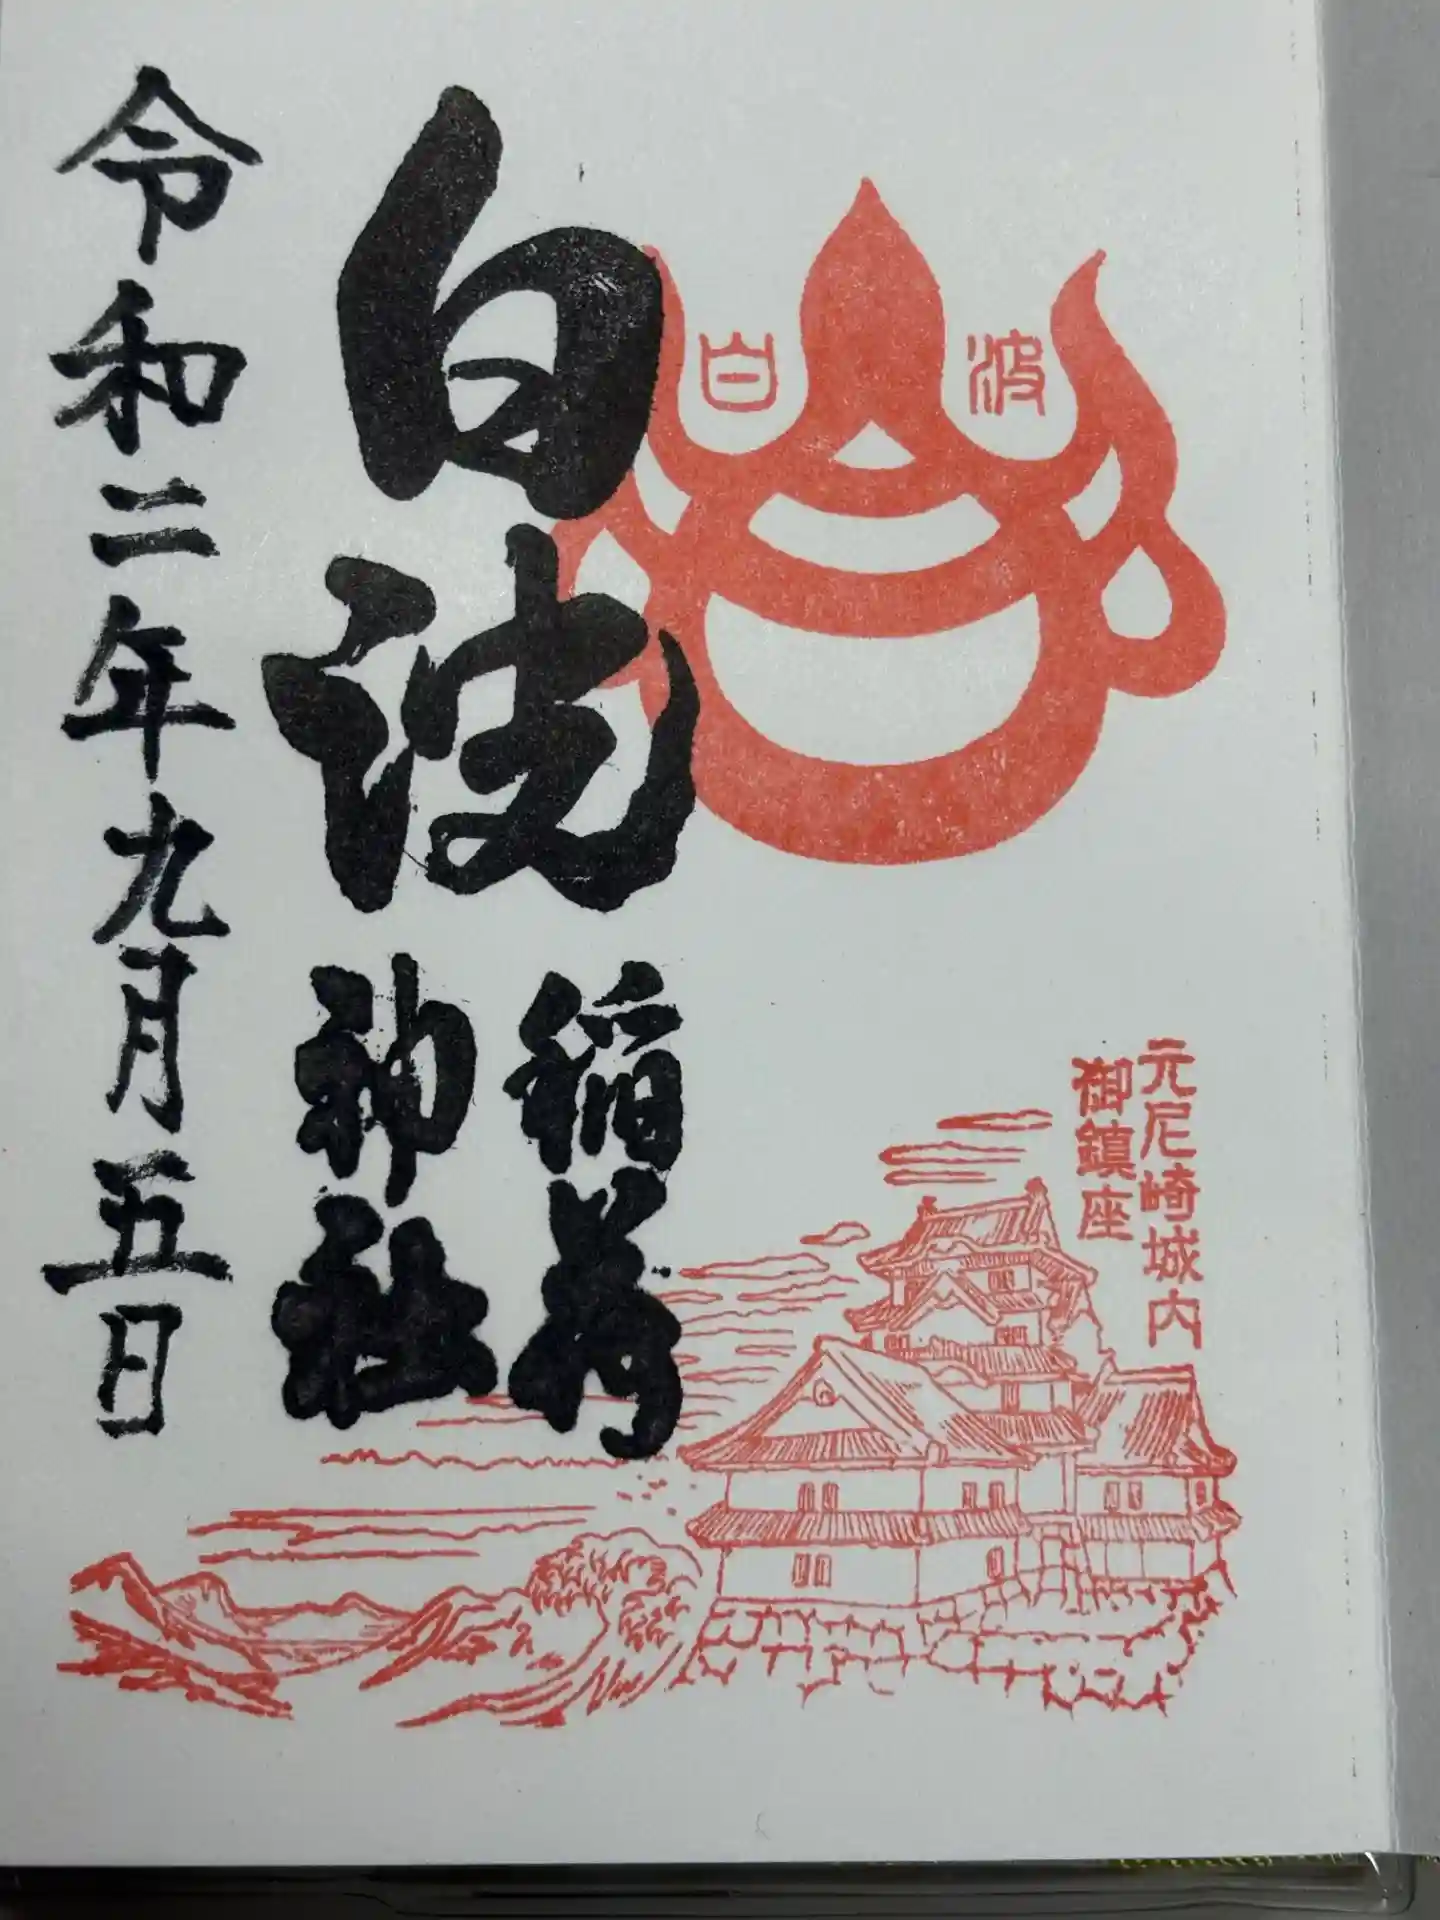 元尼崎城内
御鎮座
白波
白波
稲荷
神社
令和二年九月五日